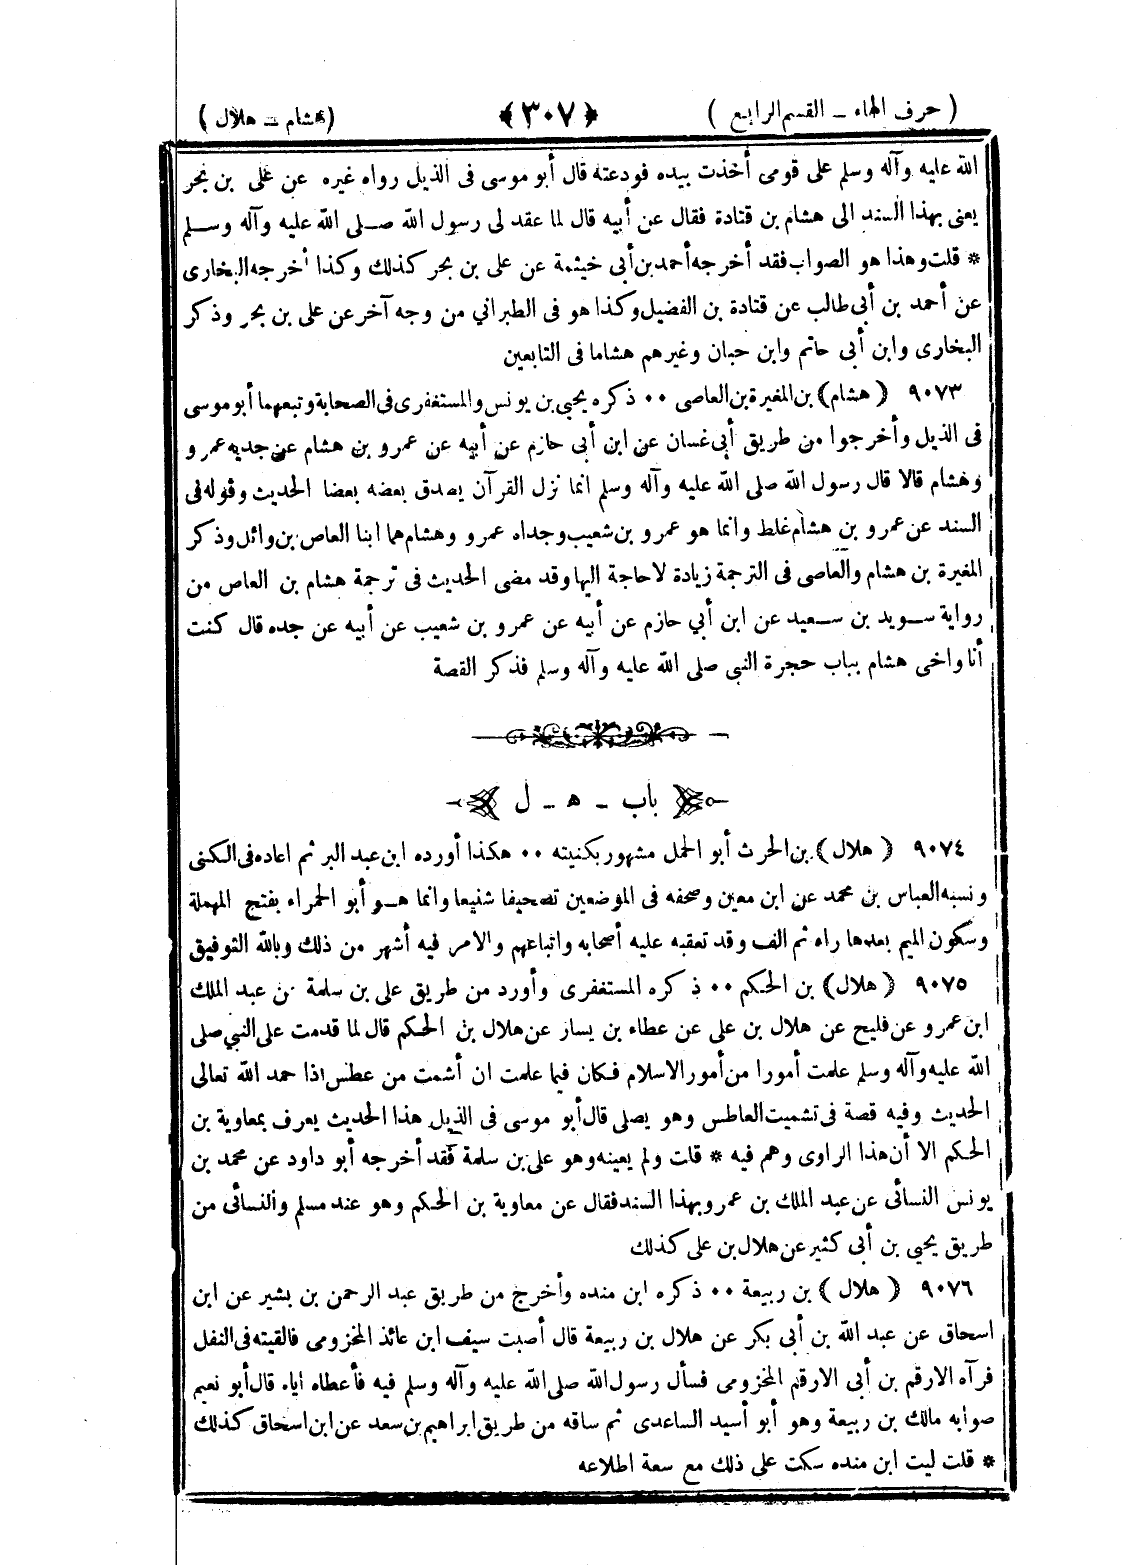 ( حرف الهاء ـ القسم الرابع )
﴿ ٣٠٧ ﴾
( هشام ـ هلال )
الله عليه وآله وسلم على قومى أخذت بيده فودعته قال أبو موسى فى الذيل رواه غيره عن على بن بحر
يعنى بهذا السند الى هشام بن قتادة فقال عن أبيه قال لما عقد لى رسول الله صلى الله عليه وآله وسلم
* قلت وهذا هو الصواب فقد أخرجه أحمد بن أبي خيثمة عن على بن بحر كذلك وكذا أخرجه البخارى
عن أحمد بن أبى طالب عن قتادة بن الفضيل وكذا هو فى الطبراني من وجه آخر عن على بن بحر وذكر
البخارى وابن أبى حاتم وابن حبان وغيرهم هشاما فى التابعين
٩٠٧٣ ( هشام ) بن المغيرة بن العاصى ٠٠ ذكره يحيى بن يونس والمستغفرى فى الصحابة وتبعهما أبو موسى
فى الذيل وأخرجوا من طريق أبى غسان عن ابن أبى حازم عن أبيه عن عمرو بن هشام عن جديه عمرو
وهشام قالا قال رسول الله صلى الله عليه وآله وسلم انما نزل القرآن يصدق بعضه بعضا الحديث وقوله فى
السند عن عمرو بن هشام غلط وانما هو عمرو بن شعيب وجداه عمرو وهشام هما ابنا العاص بن وائل وذكر
المغيرة بن هشام والعاصى فى الترجمة زيادة لاحاجة اليها وقد مضى الحديث فى ترجمة هشام بن العاص من
رواية سويد بن سعيد عن ابن أبي حازم عن أبيه عن عمرو بن شعيب عن أبيه عن جده قال كنت
أنا واخى هشام بباب حجرة النبى صلى الله عليه وآله وسلم فذكر القصة
باب ـ ه ـ ل
٩٠٧٤ ( هلال ) بن الحرث أبو الجمل مشهور بكنيته ٠٠ هكذا أورده ابن عبد البر ثم اعاده فى الكنى
ونسبه العباس بن محمد عن ابن معين وصحفه فى الموضعين تصحيفا شنيعا وانما هو أبو الحمراء بفتح المهملة
وسكون الميم بعدها راء ثم الف وقد تعقبه عليه أصحابه واتباعهم والامر فيه أشهر من ذلك وبالله التوفيق
٩٠٧٥ ( هلال ) بن الحكم ٠٠ ذكره المستغفرى وأورد من طريق على بن سلمة عن عبد الملك
ابن عمرو عن فليح عن هلال بن على عن عطاء بن يسار عن هلال بن الحكم قال لما قدمت على النبي صلى
الله عليه وآله وسلم علمت أمورا من أمور الاسلام فكان فيما علمت ان أشمت من عطس اذا حمد الله تعالى
الحديث وفيه قصة فى تشميت العاطس وهو يصلى قال أبو موسى فى الذيل هذا الحديث يعرف بمعاوية بن
الحكم الا أن هذا الراوى وهم فيه * قلت ولم يعينه وهو على بن سلمة فقد أخرجه أبو داود عن محمد بن
يونس النسائى عن عبد الملك بن عمرو بهذا السند فقال عن معاوية بن الحكم وهو عند مسلم والنسائى من
طريق يحيي بن أبى كثير عن هلال بن على كذلك
٩٠٧٦ ( هلال ) بن ربيعة ٠٠ ذكره ابن منده وأخرج من طريق عبد الرحمن بن بشير عن ابن
اسحاق عن عبد الله بن أبى بكر عن هلال بن ربيعة قال أصبت سيف ابن عائذ المخزومى فالقيته فى النفل
فرآه الارقم بن أبى الارقم المخزومى فسأل رسول الله صلى الله عليه وآله وسلم فيه فأعطاه اياه قال أبو نعيم
صوابه مالك بن ربيعة وهو أبو أسيد الساعدى ثم ساقه من طريق ابراهيم بن سعد عن ابن اسحاق كذلك
* قلت ليت ابن منده سكت على ذلك مع سعة اطلاعه